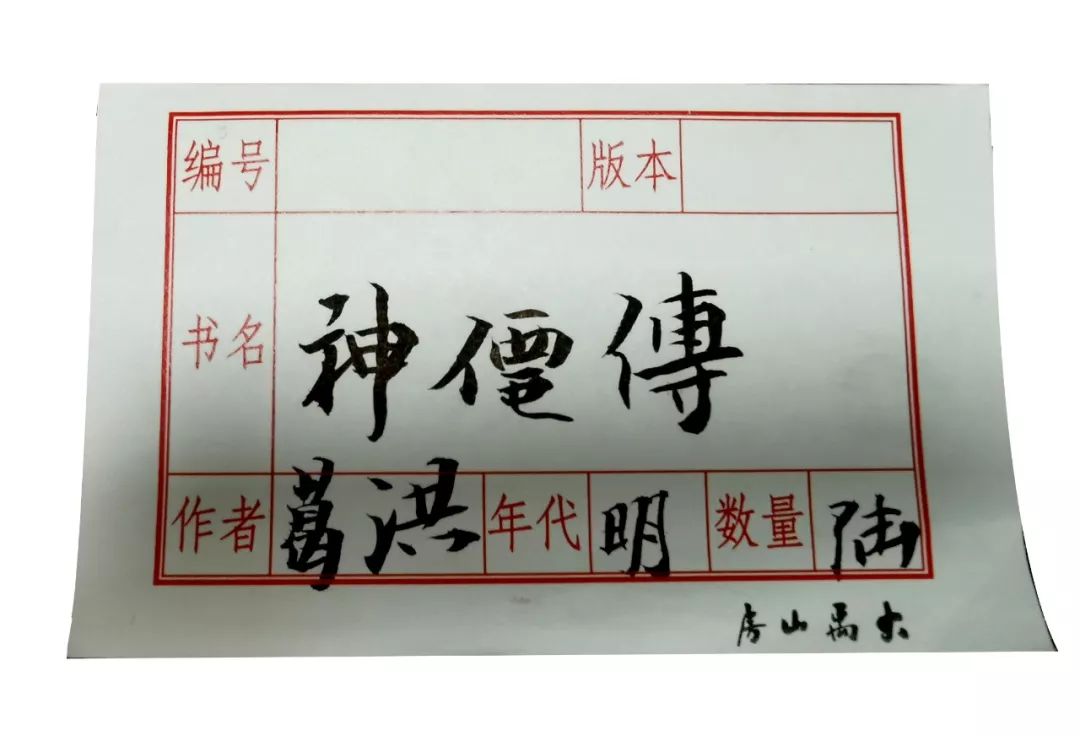 编号 版本
书名 神僊傳
作者 葛洪 年代 明 数量 陆
房山